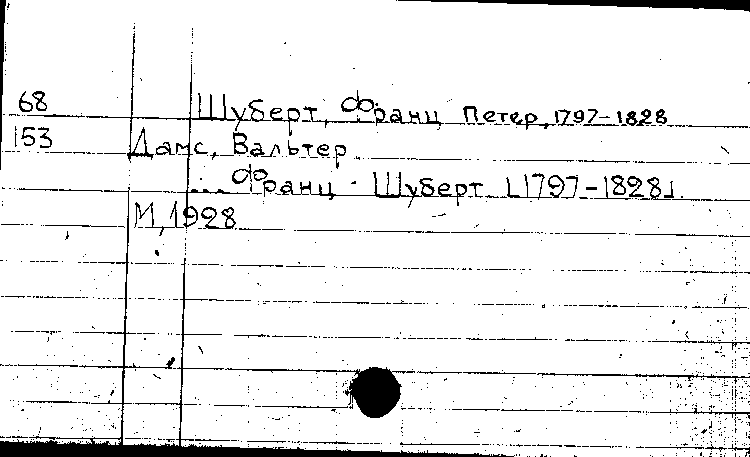 68 Шуберт, Франц Петер, 1797-1828
153 Дамс, Вальтер
... Франц Шуберт [1797-1828].
М, 1928